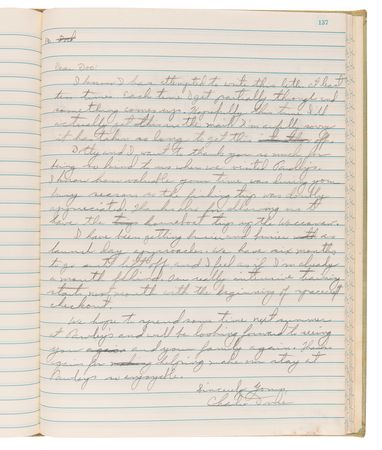 137
Dear Doc:
I know I has attempted to write this letter at least
ten times. Each time I get partially through and
something comes up. Hopefully this time I'll
actually get this in the mail. I'm awfully sorry
it has taken so long to get this off.
Dotty and I want to thank you so much for
being so kind to us when we visited Pawleys.
I know how valuable your time was during your
busy season so the fishing trip was doubly
appreciated. Thank also for allowing us to
have the houseboat trip up the Waccamaw.
I have been getting busier and busier as
launch day approaches. We have six months
to go until lift off and I feel as if I'm already
a month behind. Our really intensive training
starts next month with the beginning of spacecraft
checkout.
We hope to spend some time next summer
at Pawleys and will be looking forward to seeing
you and your family again. Thank
again for helping make our stay at
Pawleys so enjoyable.
Sincerely Yours,
Charlie Duke